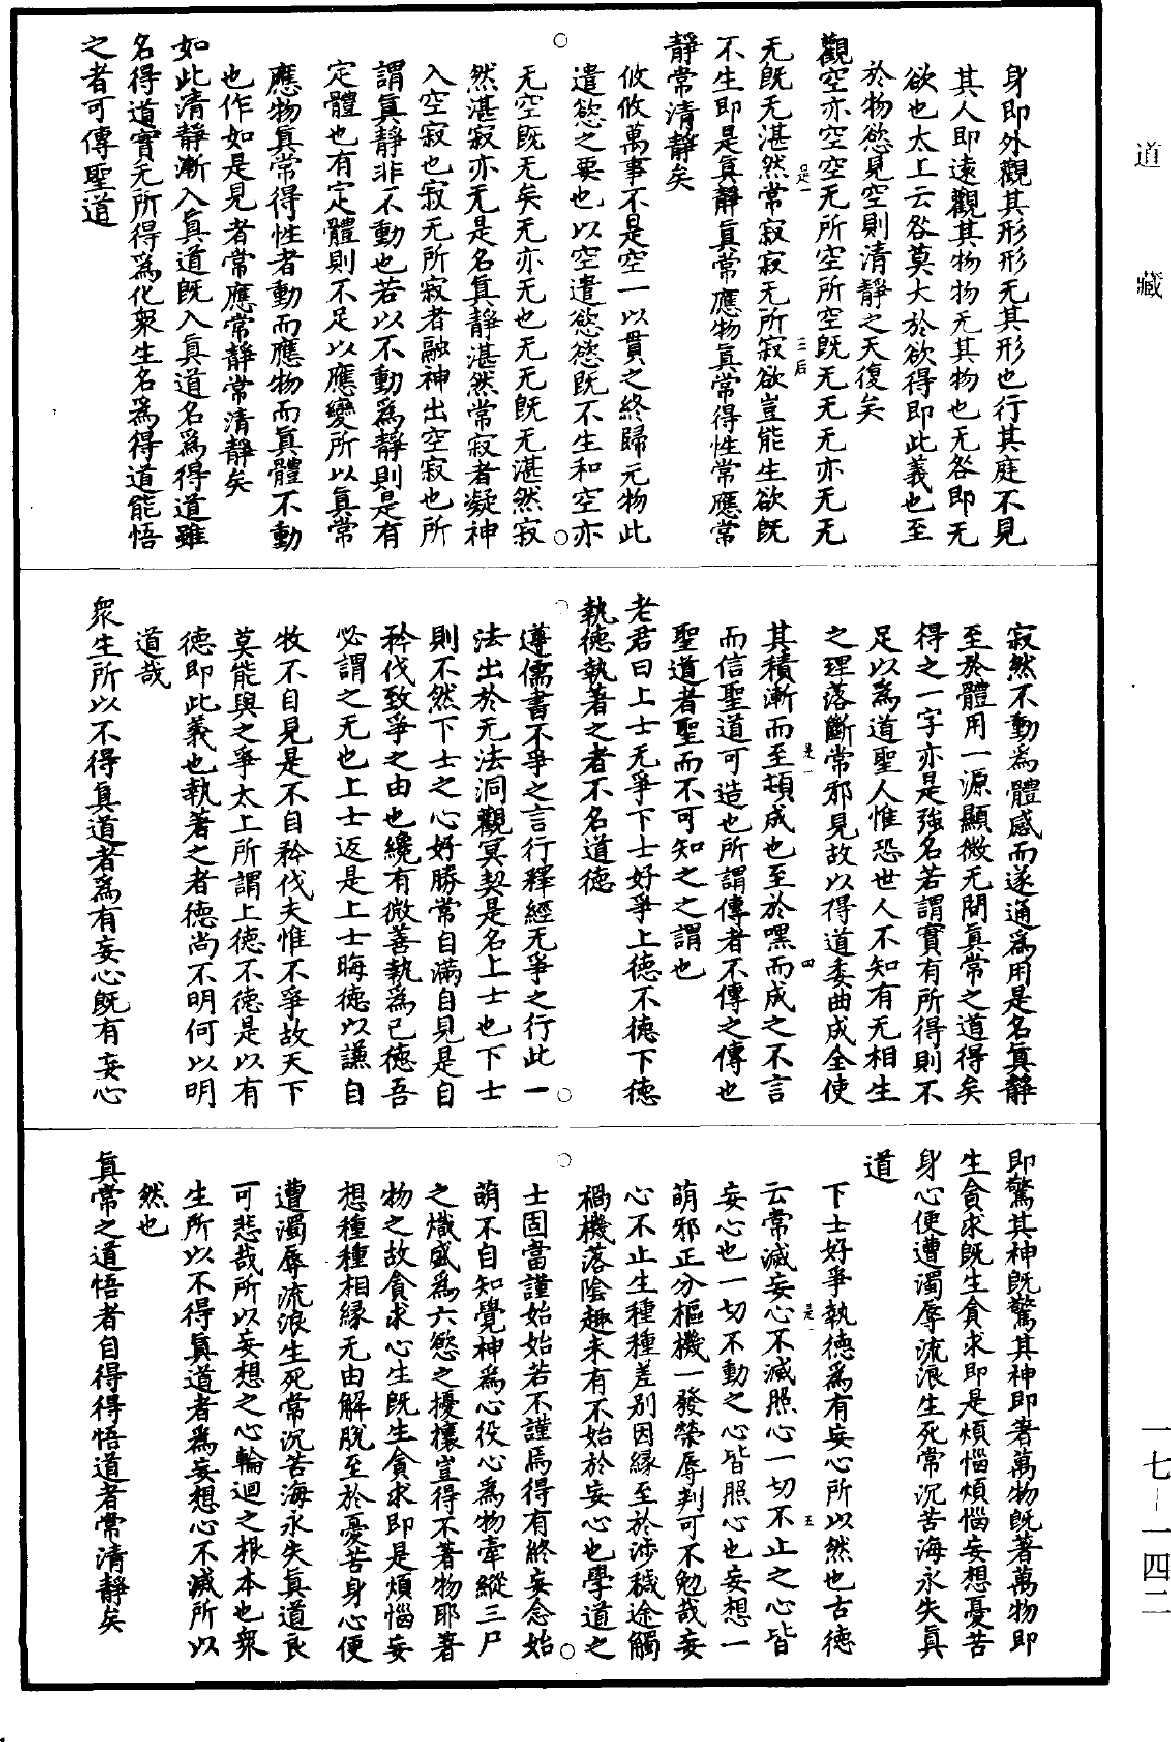 道藏
身即外觀其形形无其形也行其庭不見
其人即遠觀其物物无其物也无咎即无
欲也太上云咎莫大於欲得即此義也至
於物慾見空則清靜之天復矣
觀空亦空空无所空所空既无无无亦无无
无既无湛然常寂寂无所寂欲豈能生欲既
不生即是真靜真常應物真常得性常應常
靜常清靜矣
攸攸萬事不是空一以貫之終歸无物此
遣慾之要也以空遣慾慾既不生和空亦
无空既无矣无亦无也无无既无湛然寂
然湛寂亦无是名真靜湛然常寂者凝神
入空寂也寂无所寂者融神出空寂也所
謂真靜非不動也若以不動為靜則是有
定體也有定體則不足以應變所以真常
應物真常得性者動而應物而真體不動
也作如是見者常應常靜常清靜矣
如此清靜漸入真道既入真道名為得道雖
名得道實无所得為化眾生名為得道能悟
之者可傳聖道
寂然不動為體感而遂通為用是名真靜
至於體用一源顯微无間真常之道得矣
得之一字亦是強名若謂實有所得則不
足以為道聖人惟恐世人不知有无相生
之理落斷常邪見故以得道委曲成全使
其積漸而至頓成也至於嘿而成之不言
而信聖道可造也所謂傳者不傳之傳也
聖道者聖而不可知之之謂也
老君曰上士无爭下士好爭上德不德下德
執德執著之者不名道德
遵儒書不爭之言行釋經无爭之行此一
法出於无法洞觀冥契是名上士也下士
則不然下士之心好勝常自滿自見是自
矜伐致爭之由也纔有微善執為已德吾
必謂之无也上士返是上士晦德以謙自
牧不自見是不自矜伐夫惟不爭故天下
莫能與之爭太上所謂上德不德是以有
德即此義也執著之者德尚不明何以明
道哉
眾生所以不得真道者為有妄心既有妄心
即驚其神既驚其神即著萬物既著萬物即
生貪求既生貪求即是煩惱煩惱妄想憂苦
身心便遭濁辱流浪生死常沉苦海永失真
道
下士好爭執德為有妄心所以然也古德
云常滅妄心不滅照心一切不止之心皆
妄心也一切不動之心皆照心也妄想一
萌邪正分樞機一發榮辱判可不勉哉妄
心不止生種種差別因緣至於涉穢途觸
禍機落陰趣未有不始於妄心也學道之
士固當謹始始若不謹焉得有終妄念始
萌不自知覺神為心役心為物牽縱三尸
之熾盛為六慾之擾攘豈得不著物耶著
物之故貪求心生既生貪求即是煩惱妄
想種種相緣无由解脫至於憂苦身心便
遭濁辱流浪生死常沉苦海永失真道良
可悲哉所以妄想之心輪迴之根本也眾
生所以不得真道者為妄想心不滅所以
然也
真常之道悟者自得得悟道者常清靜矣
一七—一四二